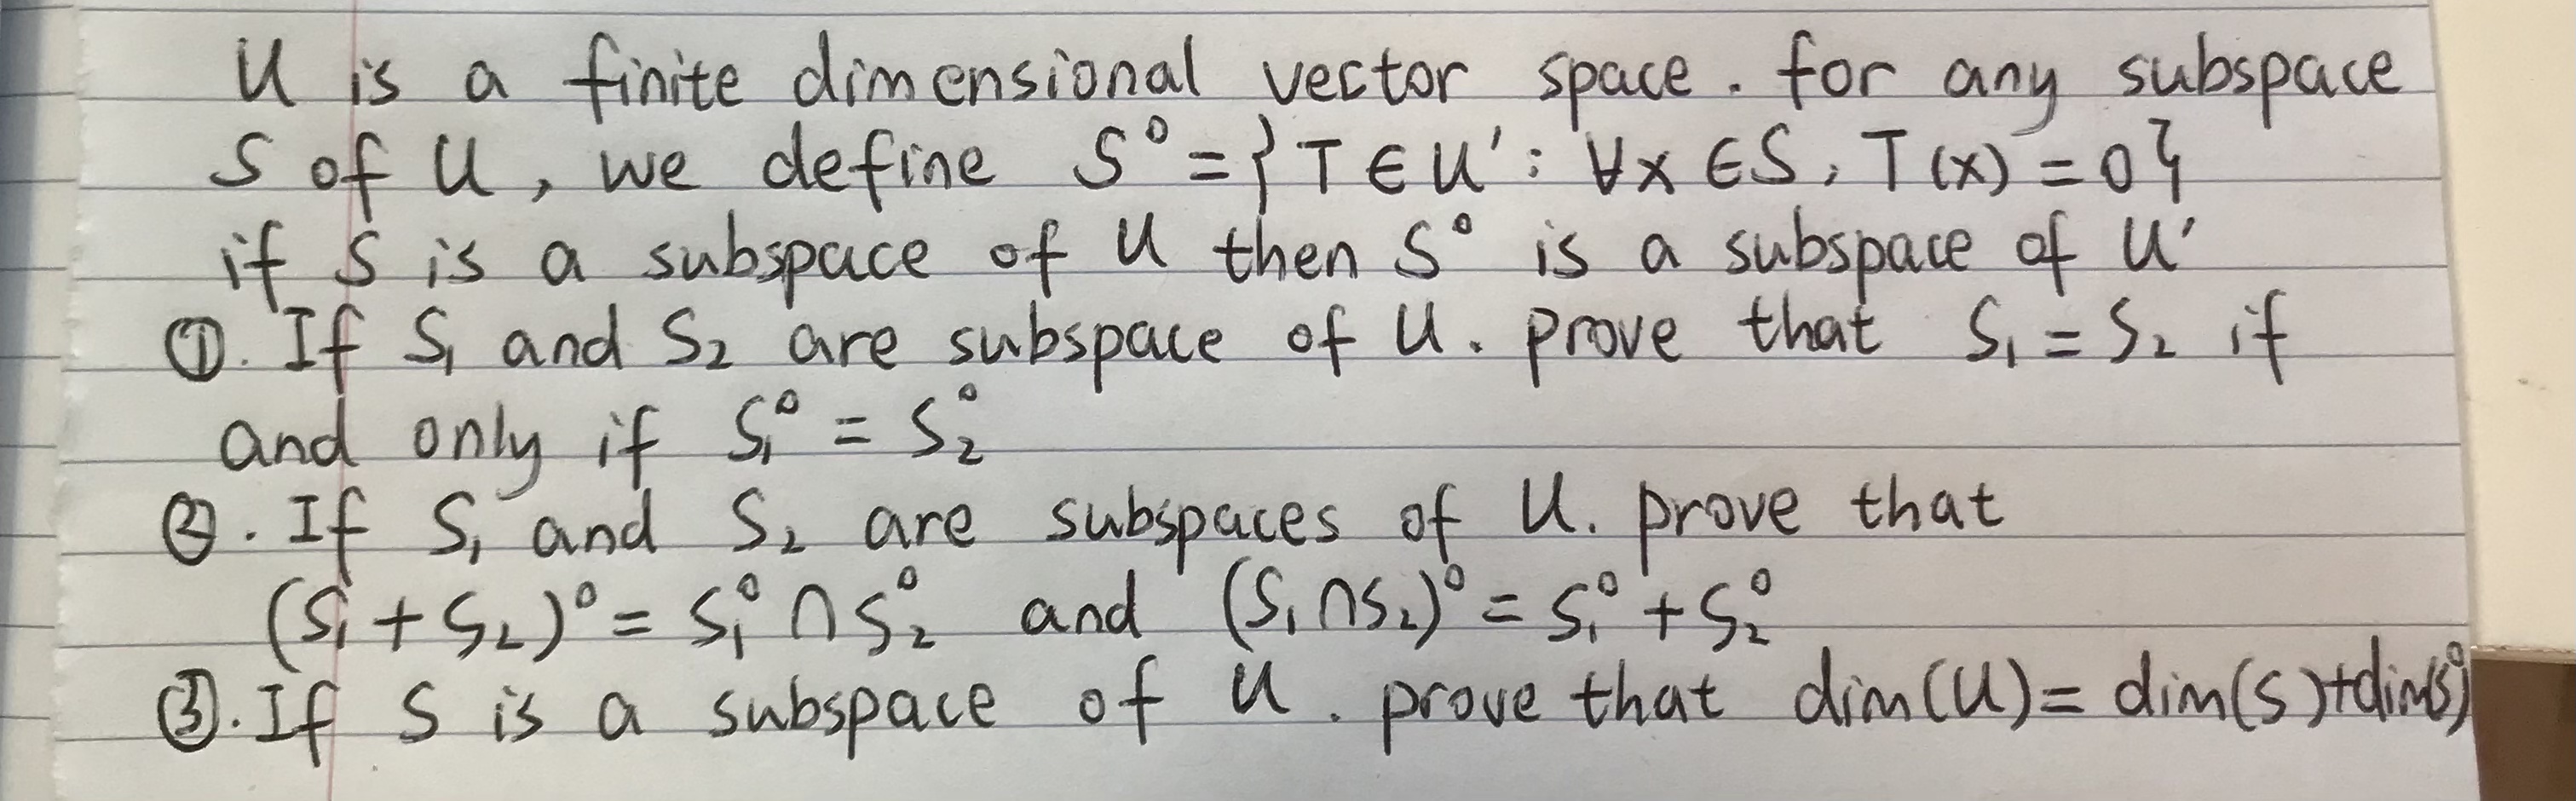 U is a finite dimensional vector space. for any subspace
S of U, we define S° = {T ∈ U' : ∀x ∈ S, T(x) = 0}
if S is a subspace of U then S° is a subspace of U'
①. If S₁ and S₂ are subspace of U. prove that S₁ = S₂ if
and only if S₁° = S₂°
②. If S₁ and S₂ are subspaces of U. prove that
(S₁ + S₂)° = S₁° ∩ S₂° and (S₁ ∩ S₂)° = S₁° + S₂°
③. If S is a subspace of U. prove that dim(U) = dim(S) + dim(S°)